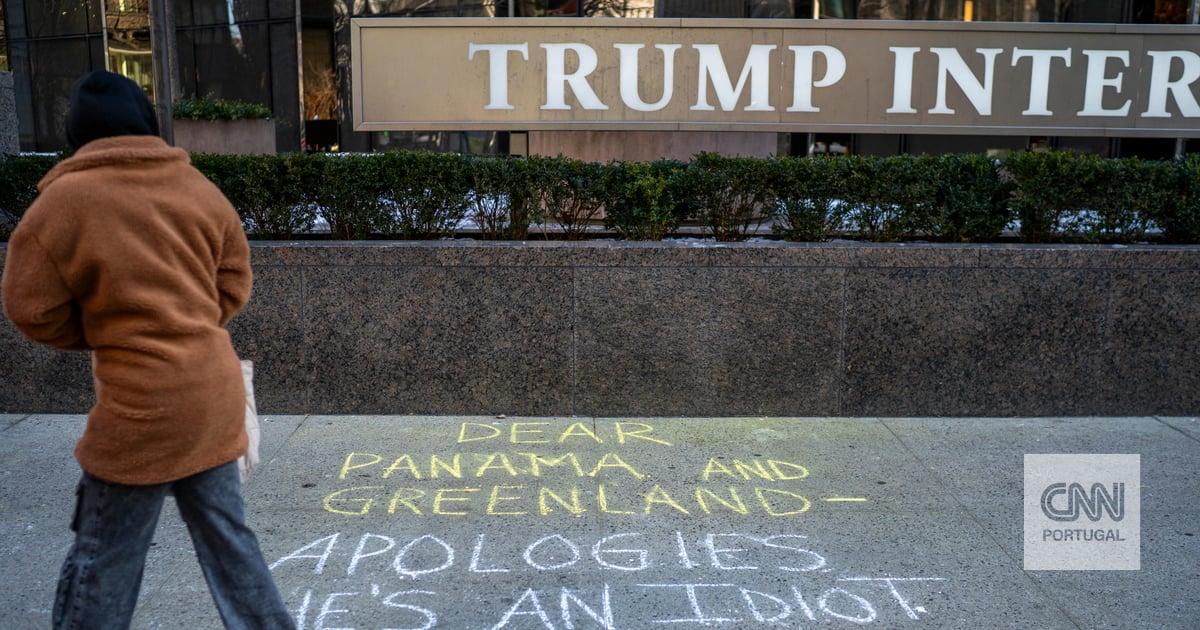 TRUMP INTER
DEAR
PANAMA AND
GREENLAND —
APOLOGIES
HE'S AN IDIOT
CNN
PORTUGAL